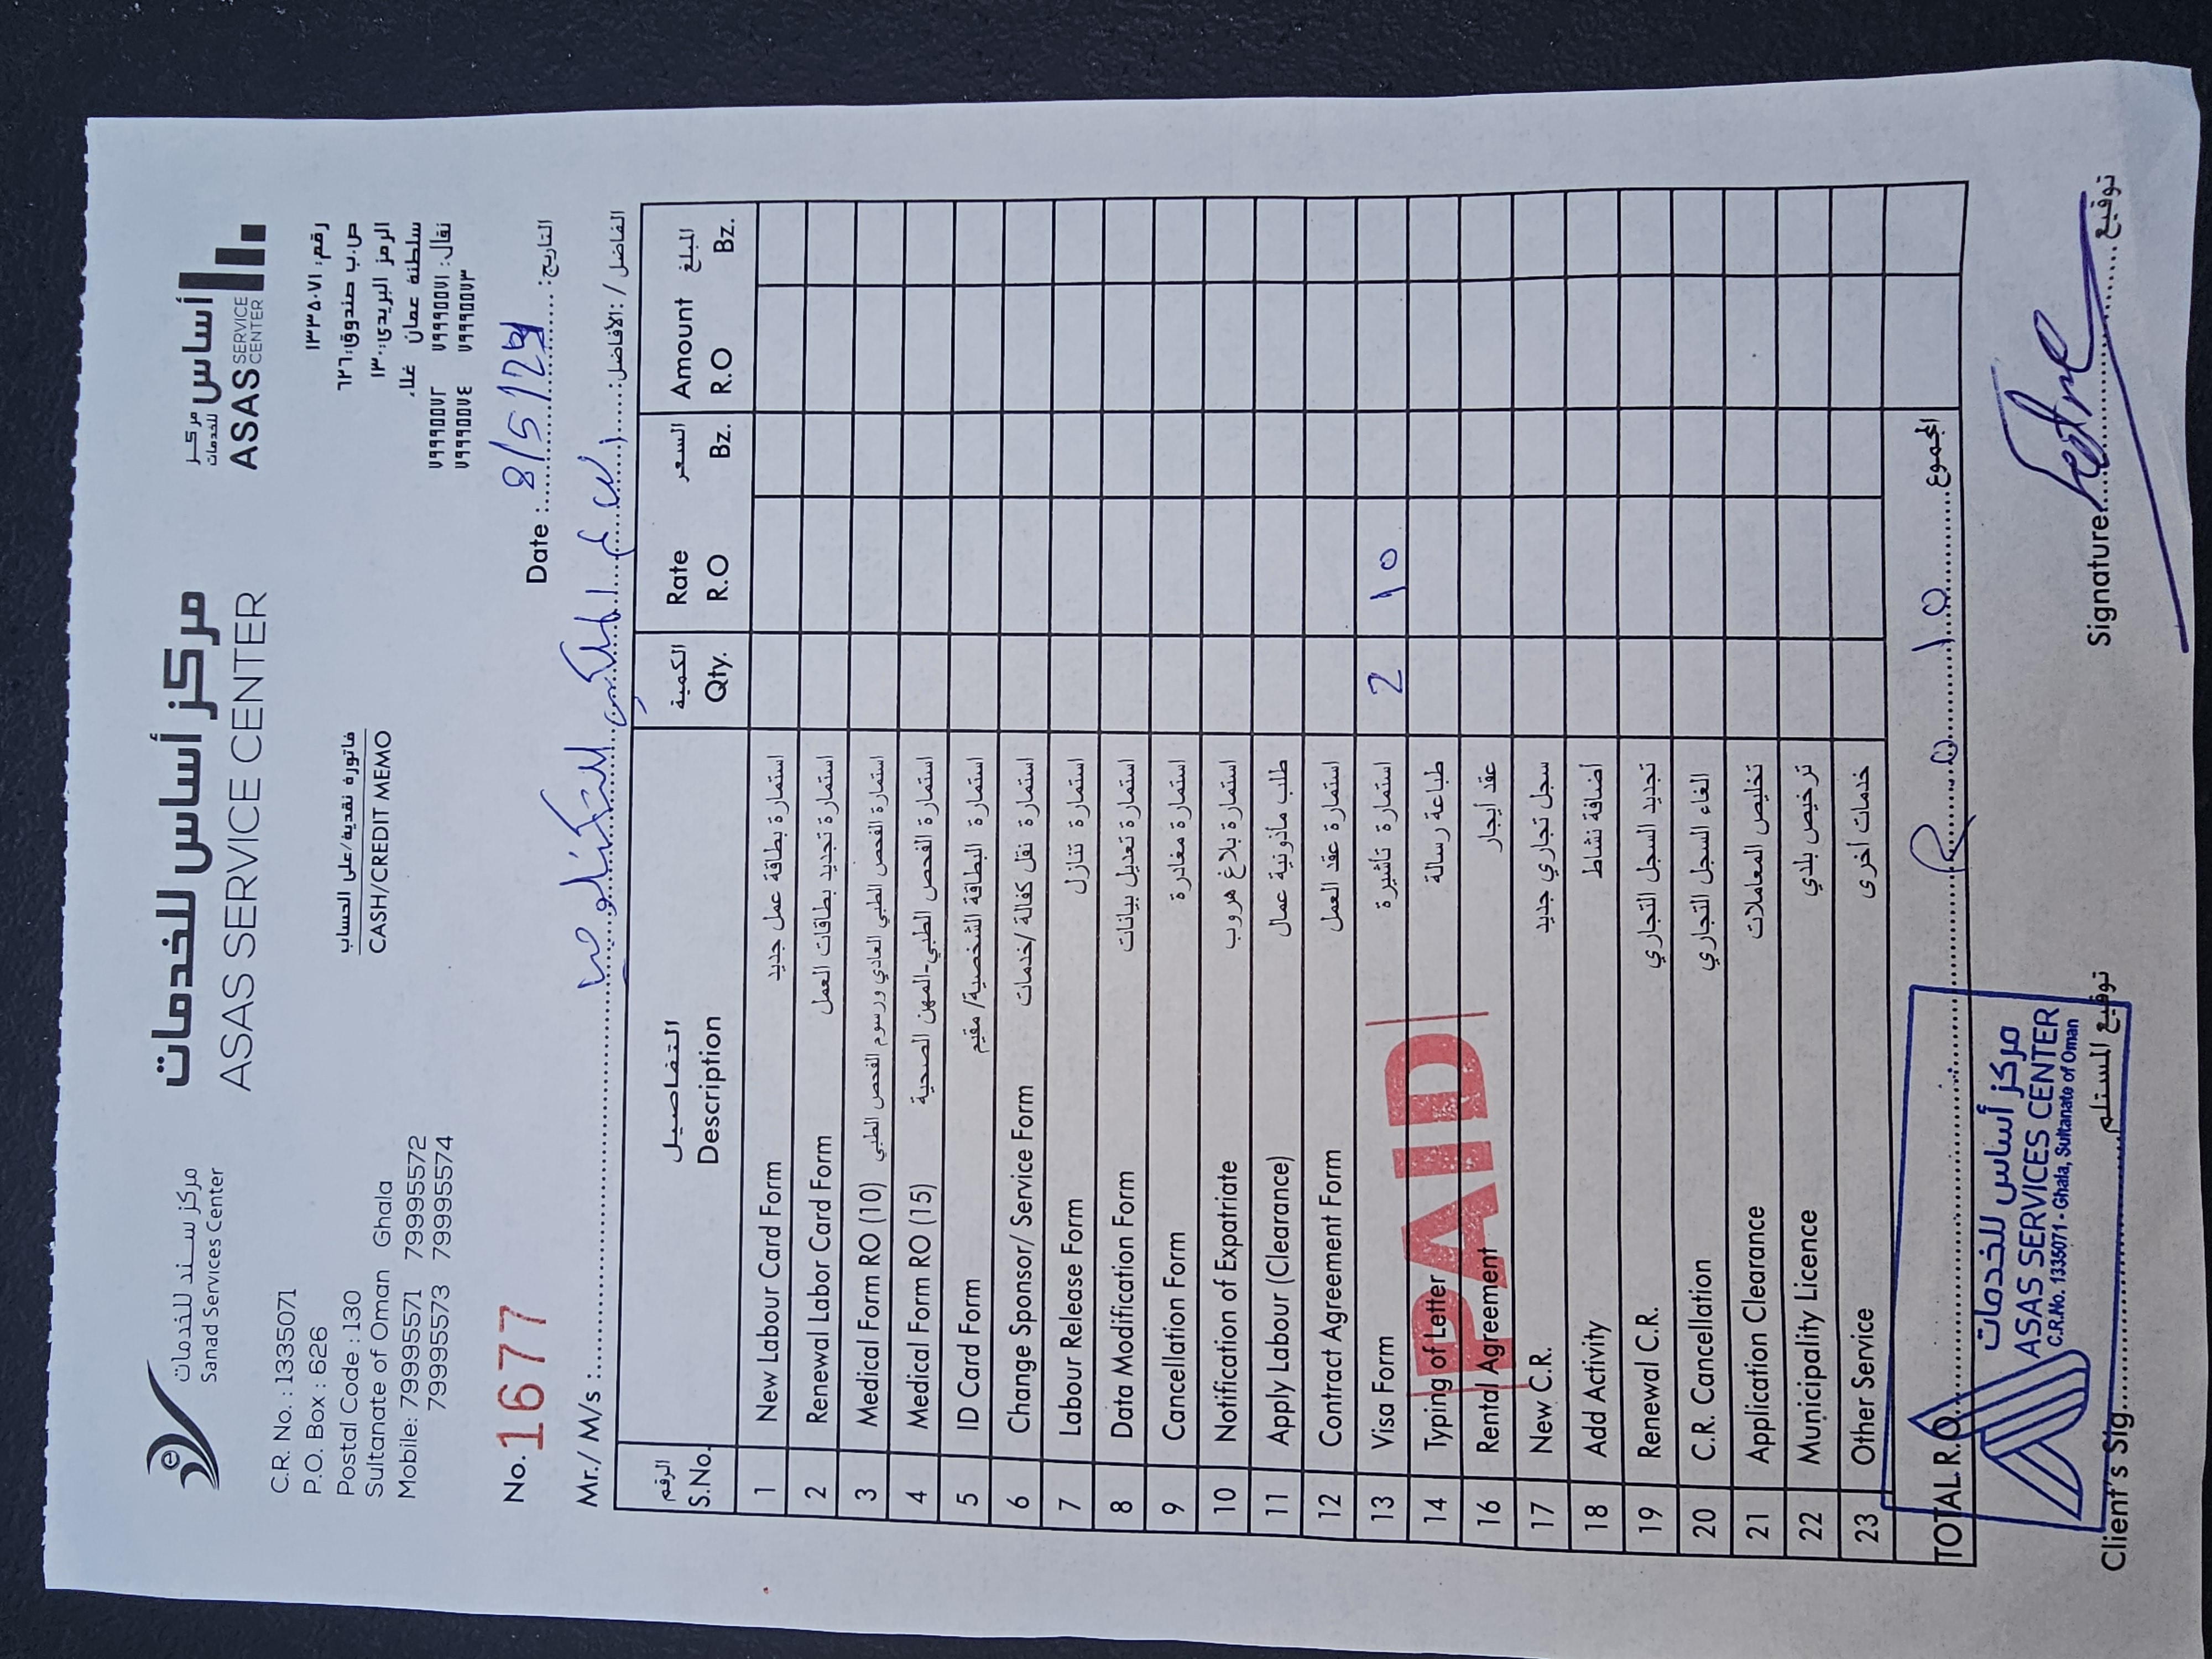 مركز سند للخدمات
Sanad Services Center
مركز أساس للخدمات
ASAS SERVICE CENTER
مركز أساس للخدمات
ASAS SERVICE CENTER
C.R. No. : 1335071
P.O. Box : 626
Postal Code : 130
Sultanate of Oman Ghala
Mobile: 79995571 79995572
79995573 79995574
فاتورة نقدية/على الحساب
CASH/CREDIT MEMO
رقم: ١٣٣٥٠٧١
ص.ب صندوق: ٦٢٦
الرمز البريدي: ١٣٠
سلطنة عمان غلاء
نقال: ٧٩٩٩٥٥٧١ ٧٩٩٩٥٥٧٢
٧٩٩٩٥٥٧٣ ٧٩٩٩٥٥٧٤
No. 1677
Date : 8/5/24 التاريخ:
Mr./ M/s : الفاضل / الأفاضل:
الرقم التفاصيل الكمية السعر المبلغ
S.No. Description Qty. Rate Amount
R.O Bz. R.O Bz.
1 New Labour Card Form استمارة بطاقة عمل جديد
2 Renewal Labor Card Form استمارة تجديد بطاقات العمل
3 Medical Form RO (10) استمارة الفحص الطبي العادي ورسوم الفحص الطبي
4 Medical Form RO (15) استمارة الفحص الطبي-المهن الصحية
5 ID Card Form استمارة البطاقة الشخصية/ مقيم
6 Change Sponsor/ Service Form استمارة نقل كفالة /خدمات
7 Labour Release Form استمارة تنازل
8 Data Modification Form استمارة تعديل بيانات
9 Cancellation Form استمارة مغادرة
10 Notification of Expatriate استمارة بلاغ هروب
11 Apply Labour (Clearance) طلب مأذونية عمال
12 Contract Agreement Form استمارة عقد العمل
13 Visa Form استمارة تأشيرة 2 10
14 Typing of Letter طباعة رسالة
16 Rental Agreement عقد أيجار
17 New C.R. سجل تجاري جديد
18 Add Activity أضافة نشاط
19 Renewal C.R. تجديد السجل التجاري
20 C.R. Cancellation الغاء السجل التجاري
21 Application Clearance تخليص المعاملات
22 Municipality Licence ترخيص بلدي
23 Other Service خدمات أخرى
PAID
TOTAL R.O. R.o 10 المجموع
مركز أساس للخدمات
ASAS SERVICES CENTER
C.R.No. 1335071 - Ghala, Sultanate of Oman
Client's Sig. توقيع المستلم Signature توقيع